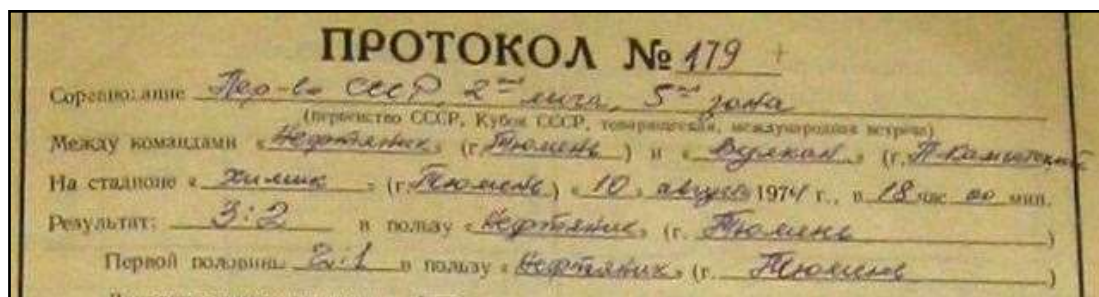 ПРОТОКОЛ № 179
Соревнование Пер-во СССР, 2ая лига, 5ая зона
(первенство СССР, Кубок СССР, товарищеская, международная встреча)
Между командами «Нефтяник» (г. Тюмень) и «Вулкан» (г. П-Камчатский
На стадионе «Химик» (г. Тюмень) «10» августа 1974 г., в 18 час 00 мин.
Результат: 3:2 в пользу «Нефтяник» (г. Тюмень)
Первой половины 2:1 в пользу «Нефтяник» (г. Тюмень)